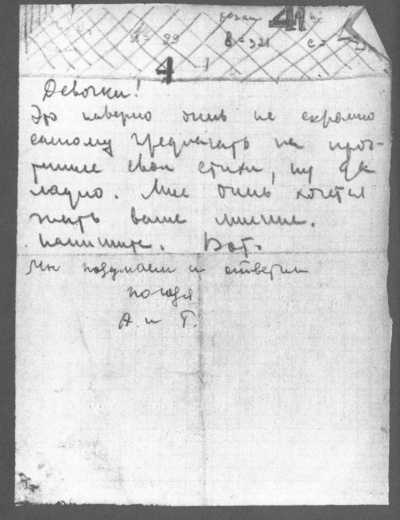 41
= 39 B = 321 c =
4
Девочки!
Это наверно очень не скромно
самому предлагать на проч-
тение свои стихи, ну да
ладно. Мне очень хочется
знать ваше мнение.
напишите. Вот.
Мы подумаем и ответим
погодя
А. и Г.